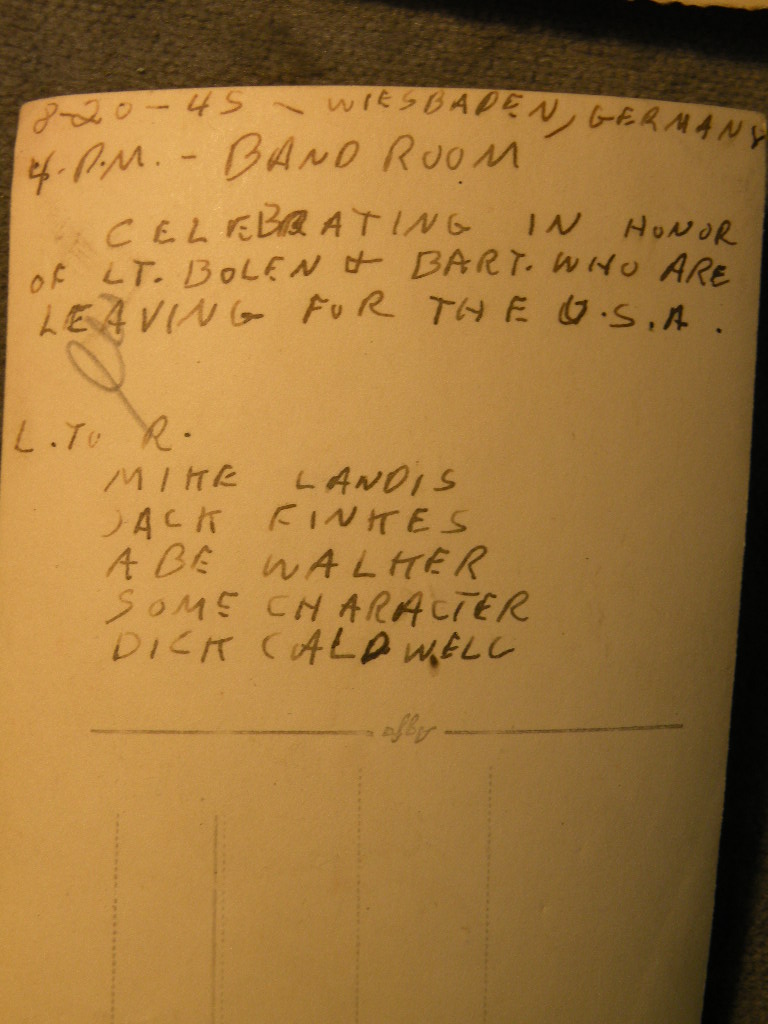 8-20-45 - WIESBADEN, GERMANY
4-P.M. - BAND ROOM
CELEBRATING IN HONOR
OF LT. BOLEN & BART. WHO ARE
LEAVING FOR THE U.S.A.
L. TO R.
MIKE LANDIS
JACK FINKES
ABE WALKER
SOME CHARACTER
DICK CALDWELL